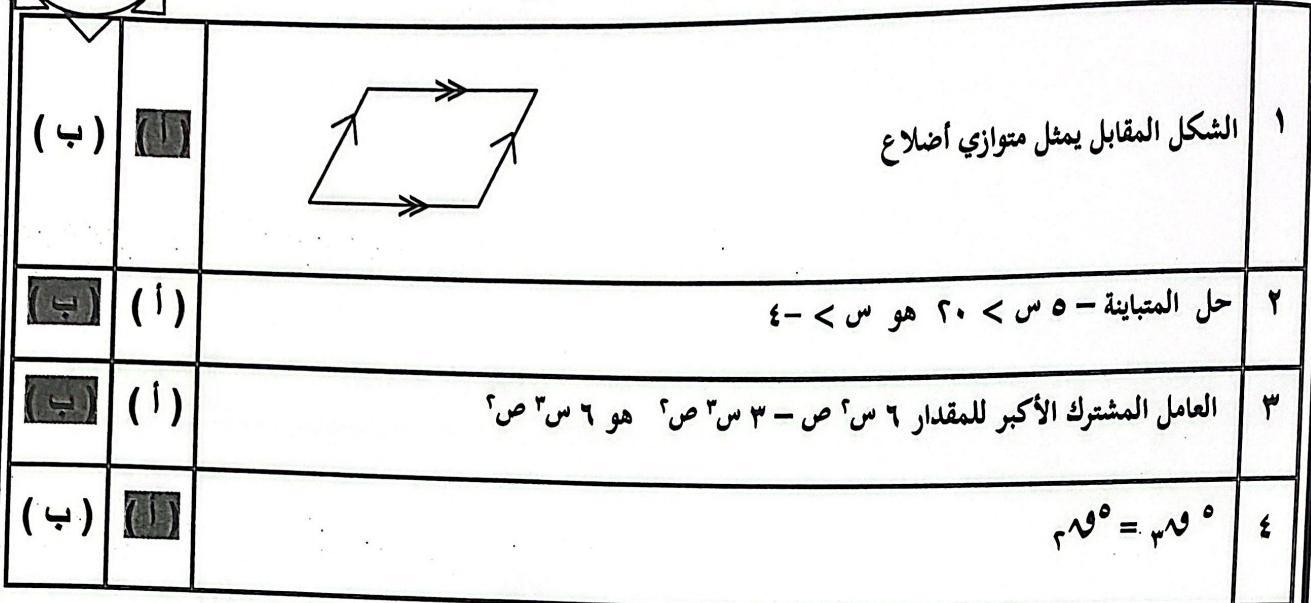 ١ الشكل المقابل يمثل متوازي أضلاع (أ) (ب)
٢ حل المتباينة – ٥ س > ٢٠ هو س > -٤ (أ) (ب)
٣ العامل المشترك الأكبر للمقدار ٦ س² ص – ٣ س³ ص² هو ٦ س³ ص² (أ) (ب)
٤ ⁵ق₃ = ⁵ق₂ (أ) (ب)